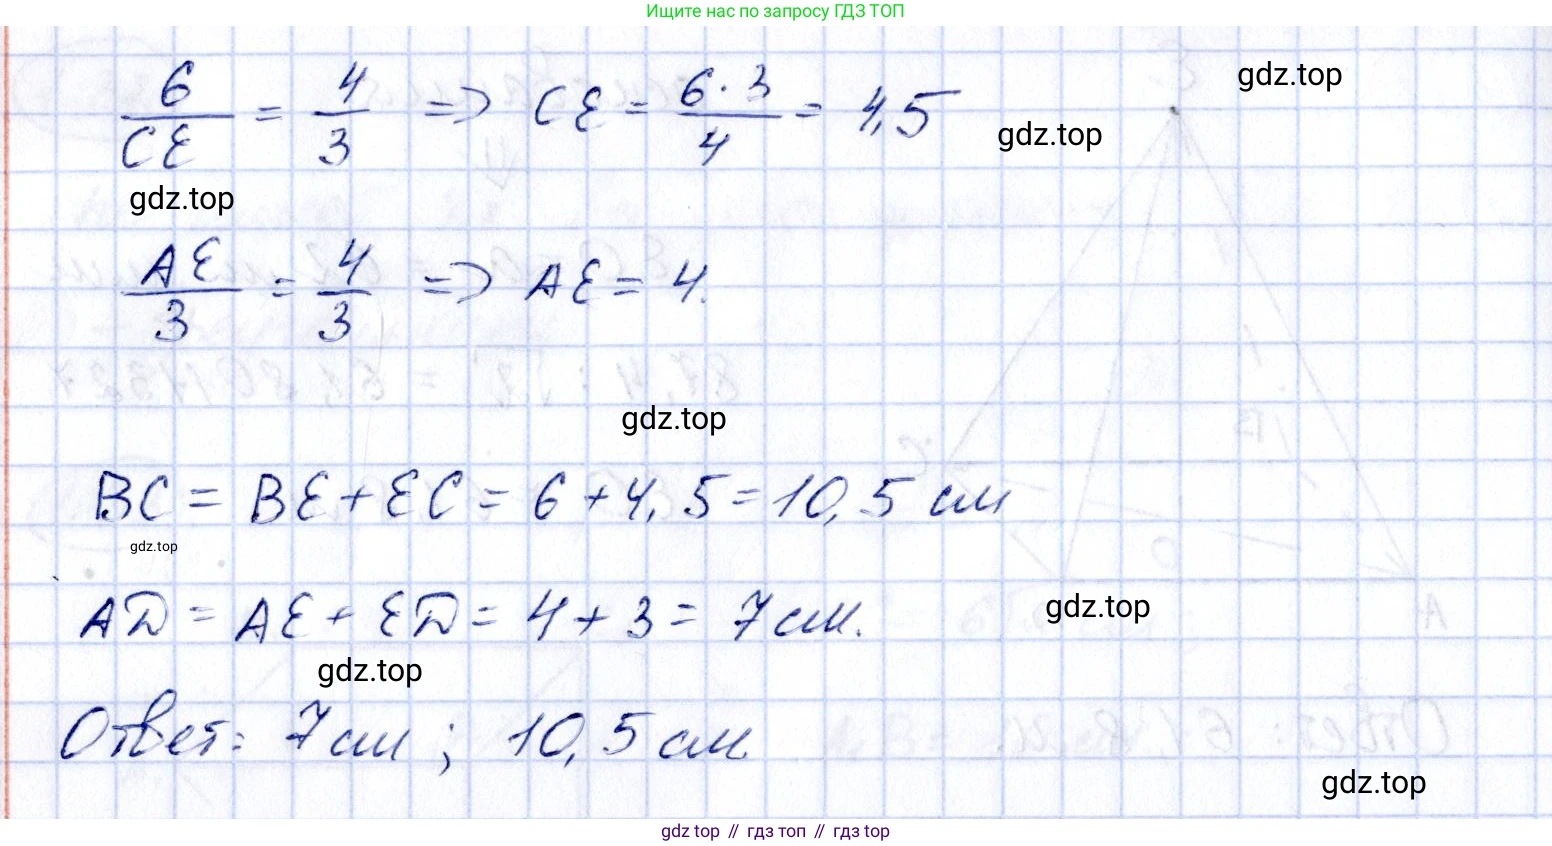 Ищите нас по запросу ГДЗ ТОП
gdz.top
6/CE = 4/3 => CE = 6·3/4 = 4,5
gdz.top
gdz.top
AE/3 = 4/3 => AE = 4.
gdz.top
BC = BE + EC = 6 + 4,5 = 10,5 см
gdz.top
AD = AE + ED = 4 + 3 = 7 см.
gdz.top
gdz.top
Ответ: 7 см ; 10,5 см.
gdz.top
gdz top // гдз топ // гдз top